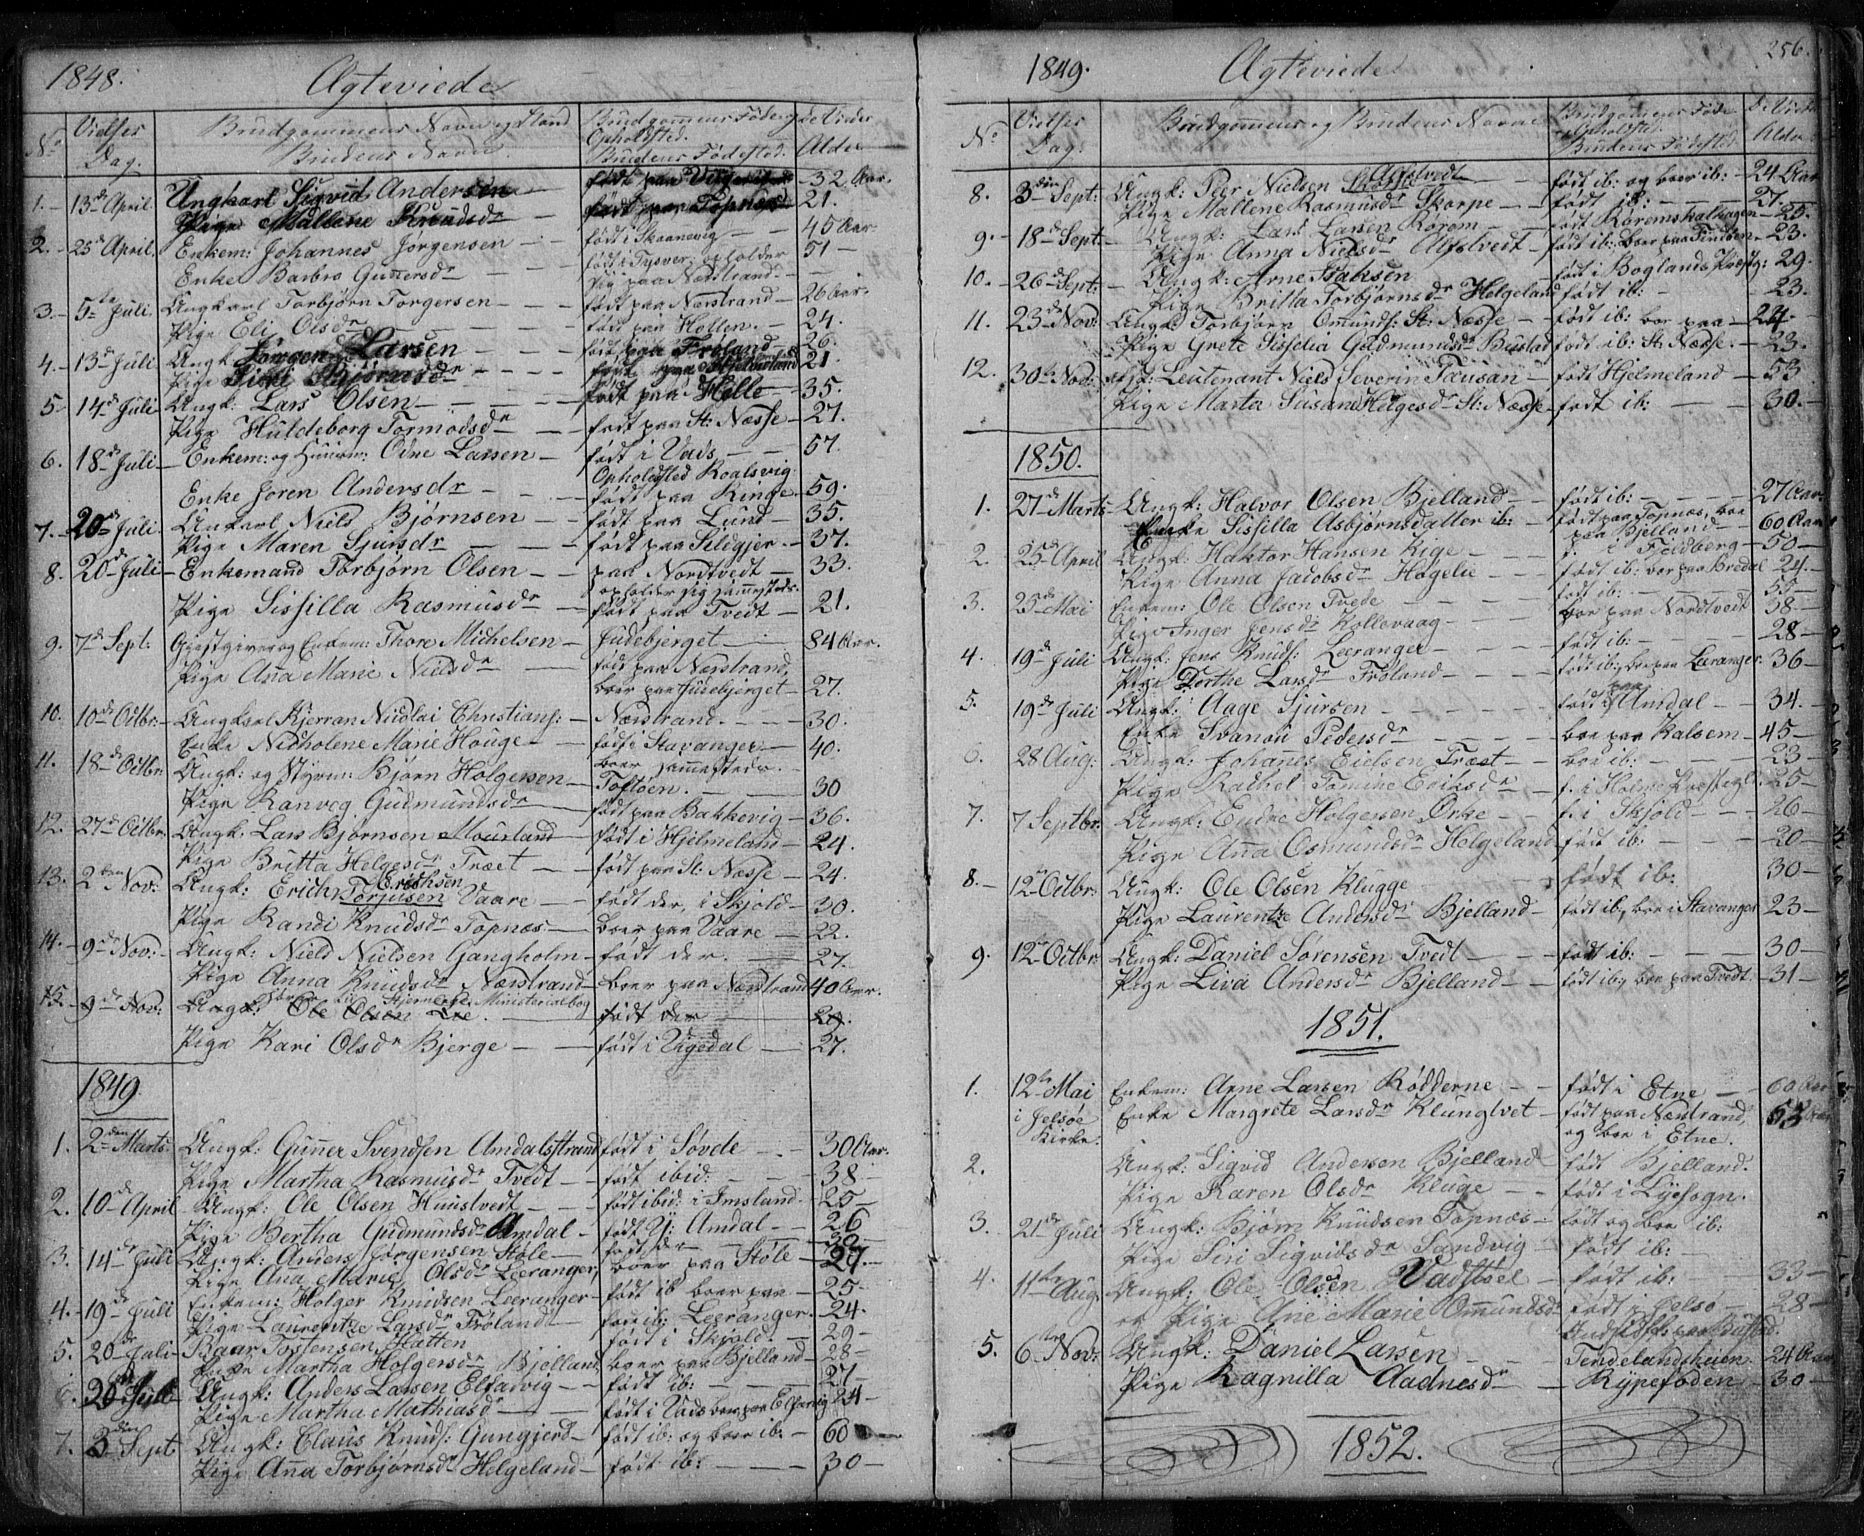 1848.
Ægteviede
No
Vielses Dag.
Brudgommens Navn og Stand
Brudens Navn.
Brudgommens Fødes og Opholdsted.
Brudens Fødested.
de Viedes Alder
1. 13de April Ungkarl Sigvid Andersen født paa 32 Aar.
Pige Mallene Knudsdr født paa Topnæs 21.
2. 25de April Enkem: Johannes Jørgensen født i Skaanevig 45 Aar
Enke Barbro Gunersdr født i Tysver, opholder sig paa Nærstrand. 51
3. 5te Juli. Ungkarl Torbjørn Torgersen født paa Nærstrand 26 Aar.
Pige Eli Olsdr født paa Hollen 24.
4. 13de Juli Ungk. Larsen født paa Frøland 26.
Pige Bjørnsdr født paa 21
5. 14de Juli Ungk: Lars Olsen født paa Helle 35.
Pige Huldeborg Tormodsdr født paa St: Næsse 27.
6. 18de Juli Enkem: og Huusm: Odne Larsen født i Vads 57.
Opholdsted Roalsvig
Enke Joren Andersdr født paa Ringe 59.
7. 20de Juli. Ungkarl Niels Bjørnsen født paa Lund 35.
Pige Maren Sjursdr født paa Seldgjer. 37.
8. 20de Juli Enkemand Torbjørn Olsen paa Nordtvedt 33.
opholder sig sammesteds.
Pige Sissilla Rasmusdr født paa Tvedt 21.
9. 7de Sept: Gjestgiver og Enkem: Thore Michelsen Judebjerget 84 Aar.
Pige Ana Marie Nielsdr født paa Nærstrand,
boer paa Judebjerget 27.
10. 10de Octbr: Ungksel Kjerran Nicolai Christians: Nærstrand. 30.
Enke Nicholene Marie Houge født i Stavanger 40.
boer sammesteds.
11. 18de Octbr Ungk: og Styrm: Bjørn Holgersen Toftøen. 30
Pige Ranveg Gudmundsdr født paa Bakkevig 36.
12. 27de Octbr. Ungk: Lars Bjørnsen Mourland født i Hjelmeland 24.
Pige Britta Helgesdr Træet født paa St: Næsse 24.
13. 2den Nov: Ungk: Erich Torjusen Erichsen Vaare født der, i Skjold 30.
Pige Randi Knudsdr Topnæs boer paa Vaare 22.
14. 9de Nov: Ungk: Nield Nielsen Gangholm født der. 27.
Pige Anna Knudsdr Nærstrand boer paa Nærstrand 40 Aar.
Ministerialbog
15. 9de Nov: Ungk: Ole Olsen født der 29.
Pige Kari Olsdr Bjerge født i Vigedal 27.
1849.
1. 2den Marts: Ungk: Guner Svendsen Amdalsstrand født i Søvde 30 Aar.
Pige Martha Rasmusdr Tvedt født ibid: 38
2. 10de April Ungk: Ole Olsen Hunstvedt født ibid: i Imsland. 25
Pige Bertha Gudmundsdr Amdal født Amdal 26
3. 14de Juli Ungk: Anders Jørgensen Støle født der 32
Pige Ana Marie Olsdr Leeranger, boer paa Støle 27.
4. 19de Juli Enkem: Holger Knudsen Leeranger født ib boer paa 25
Pige Laurentze Larsdr Frøland født ib: Leeranger. 24.
5. 20de Juli Baar Tostensen Hatten født i Skjold. 29
Pige Martha Holgersdr Bjelland boer paa Bjelland 28
6. 26de Juli Ungk: Anders Larsen Elfarvig født ib: 27
Pige Martha Mathiasdr født i Vads boer paa Elfarvig 24
7. 3den Sept Ungk: Claus Knuds: Gungjerd født ib: og boer ib: 60
Pige Ana Torbjørnsdr Helgeland født ib: 30
256.
1849.
Ægteviede
No
Vielses Dag:
Brudgommens og Brudens Navne
Brudgommens Føde og Opholdsted.
Brudens Fødested
de Viedes Alder
8. 3den Sept: Ungk: Peer Nielsen Alfstvedt født ib: og boer ib: 24 Aar
Pige Mallene Rasmusdr Skorpe født ib: 27.
9. 18de Sept. Ungk: Lars Larsen Rørom født Røremshalhagen 25.
Pige Anna Nielsdr Alfstvedt født ib: boer paa Tindsen 23.
10. 26de Sept: Ungk: Arne Isaksen født i Boglands Præstg: 29.
Pige Britta Torbjørnsdr Helgeland født ib: 23.
11. 23de Nov: Ungk: Torbjørn Omunds: St: Næsse født ib: boer paa 24.
Pige Grete Sisselia Gudmundsdr Bustad født ib: St: Næsse. 23.
12. 30te Nov: Leutenant Niels Severin Tausan født Hjelmeland 53
Pige Marta Susane Helgesdr St: Næsse født ib: 30.
1850.
1. 27de Marts Ungk: Halvor Olsen Bjelland født ib: 27 Aar
Enke Sissilla Asbjørnsdatter ib: født paa Topnæs, boe paa Bjelland 60 Aar
2. 25de April Ungk: Haktor Hansen Rige f. i Foldberg 50
Pige Anna Jacobsdr Høgelie født ib: boer paa Bredal 24.
3. 25de Mai Enkem: Ole Olsen Tvede født ib: 55
Pige Inger Jensdr Kollevaag boe paa Nordtvedt 38
4. 19de Juli Ungk: Jens Knuds: Leeranger født ib: 28
Pige Dorthe Larsdr Frøland født ib: boe paa Leeranger. 36
5. 19de Juli Ungk: Aage Sjursen født paa Amdal 34.
Enke Svanou Pedersdr boe paa Kalsem 45
6. 28 Aug: Ungk: Johanes Eielsen Træet boe ib: 23
Pige Rachel Tomine Eriksdr f. i Holme Præstegl: 25
7. 7 Septbr. Ungk: Endre Holgersen Ørke f. i Skjold 26
Pige Ana Osmundsdr Helgeland født ib: 20
8. 12te Octbr: Ungk: Ole Olsen Klugge født ib: 30
Pige Laurentze Andersdr Bjelland født ib, boe i Stavanger 23
9. 12te Octbr: Ungk: Daniel Sørensen Tvedt født ib: 30
Pige Liva Andersdr Bjelland født ib, boe paa Tvedt. 31
1851.
1. 12te Mai Enkem: Arne Larsen Rødderne født i Etne 60 Aar
i Jelsøe Kirke. Enke Margrete Larsdr Klungtvet født paa Nærstrand, 63 Aar
og boe i Etne.
2. Ungk: Sigvid Andersen Bjelland født Bjelland.
Pige Karen Olsdr Kluge født i Lyesogn.
3. 21de Juli Ungk: Bjørn Knudsen Topnæs født og boe ib:
Pige Siri Sigvidsdr Sandvig født ib:
4. 11te Aug. Ungk: Ole Olsen Vadtsel født ib: 33
og Pige Ane Marie Omundsdr født i Jelsø 28
5. 6te Nov: Ungk: Daniel Larsen Tendelandsheien 24 Aar
Pige Ragnilla Aadnesdr Rypefoden 30
1852.